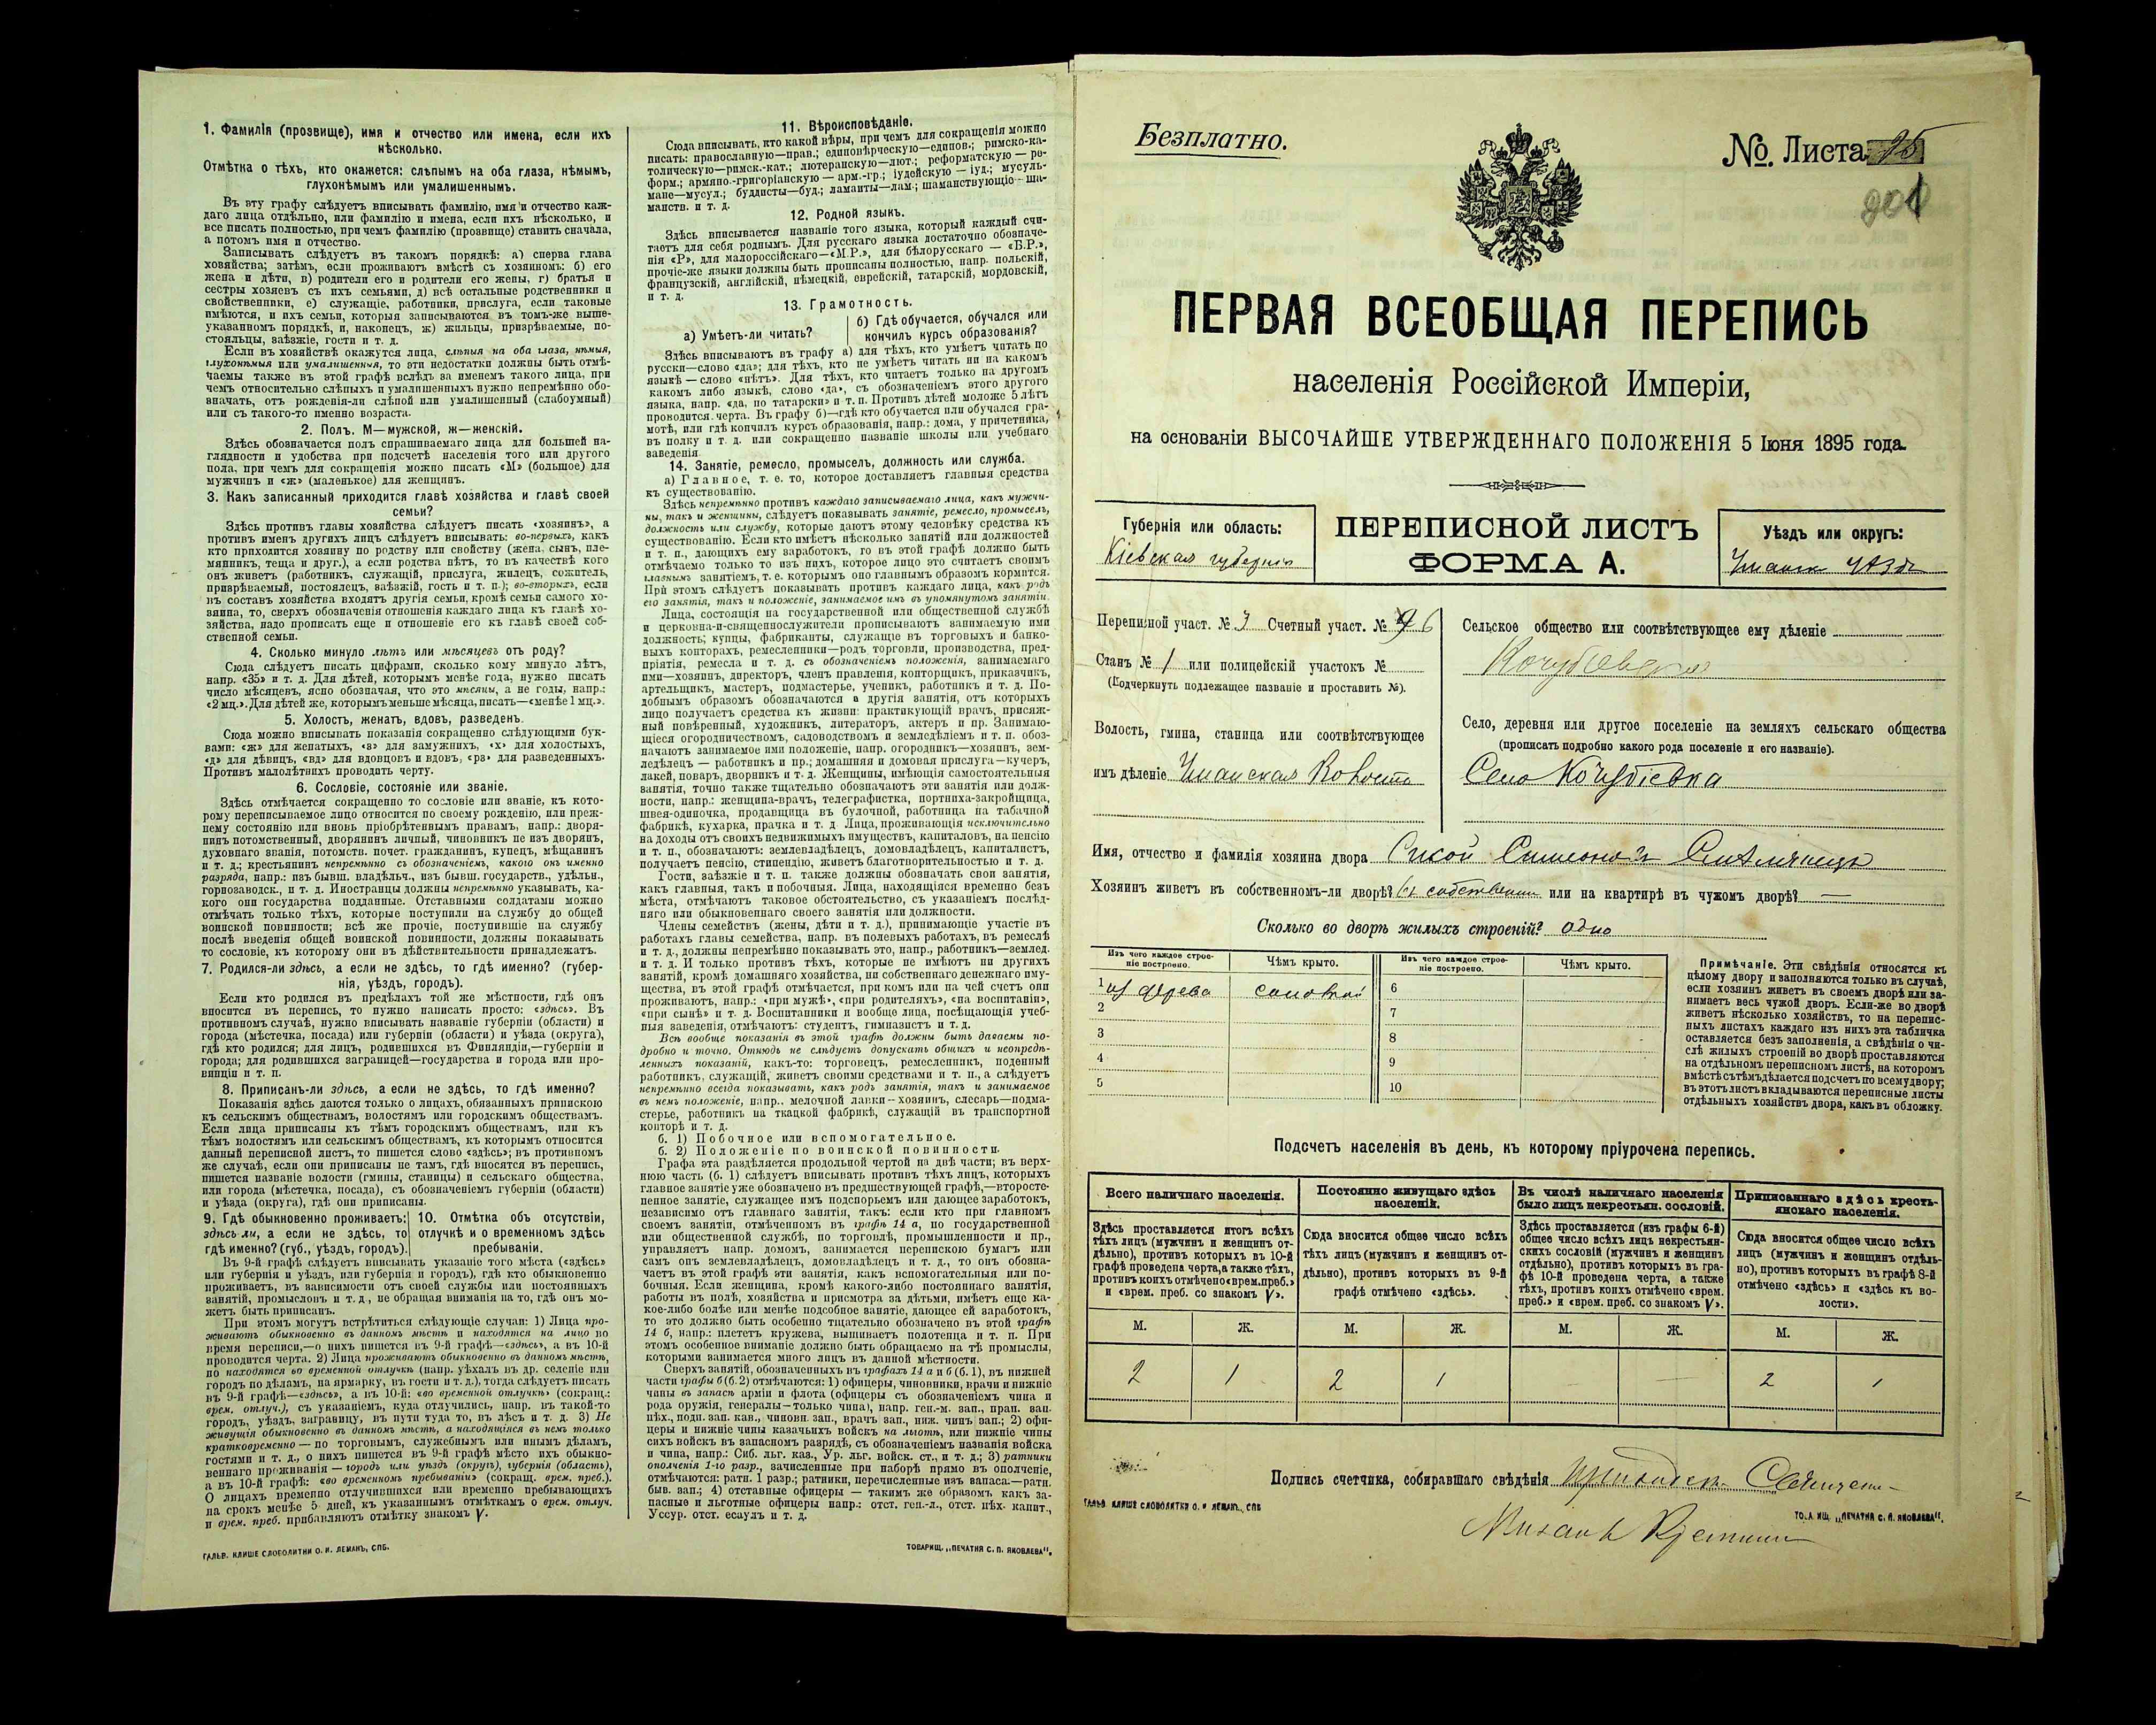 1. Фамилія (прозвище), имя и отчество или имена, если ихъ
нѣсколько.
Отмѣтка о тѣхъ, кто окажется: слѣпымъ на оба глаза, нѣмымъ,
глухонѣмымъ или умалишеннымъ.
Въ эту графу слѣдуетъ вписывать фамилію, имя и отчество каж-
даго лица отдѣльно, или фамилію и имена, если ихъ нѣсколько, и
все писать полностью, при чемъ фамилію (прозвище) ставить сначала,
а потомъ имя и отчество.
Записывать слѣдуетъ въ такомъ порядкѣ: а) сперва глава
хозяйства; затѣмъ, если проживаютъ вмѣстѣ съ хозяиномъ: б) его
жена и дѣти, в) родители его и родители его жены, г) братья и
сестры хозяевъ съ ихъ семьями, д) всѣ остальные родственники и
свойственники, е) служащіе, работники, прислуга, если таковые
имѣются, и ихъ семьи, которыя записываются въ томъ-же выше-
указанномъ порядкѣ, и, наконецъ, ж) жильцы, призрѣваемые, по-
стояльцы, заѣзжіе, гости и т. д.
Если въ хозяйствѣ окажутся лица, слѣпыя на оба глаза, нѣмыя,
глухонѣмыя или умалишенныя, то эти недостатки должны быть отмѣ-
чаемы также въ этой графѣ вслѣдъ за именемъ такого лица, при
чемъ относительно слѣпыхъ и умалишенныхъ нужно непремѣнно обо-
значать, отъ рожденія-ли слѣпой или умалишенный (слабоумный)
или съ такого-то именно возраста.
2. Полъ. М—мужской, ж—женскій.
Здѣсь обозначается полъ спрашиваемаго лица для большей на-
глядности и удобства при подсчетѣ населенія того или другого
пола, при чемъ для сокращенія можно писать «М» (большое) для
мужчинъ и «ж» (маленькое) для женщинъ.
3. Какъ записанный приходится главѣ хозяйства и главѣ своей
семьи?
Здѣсь противъ главы хозяйства слѣдуетъ писать «хозяинъ», а
противъ именъ другихъ лицъ слѣдуетъ вписывать: во-первыхъ, какъ
кто приходится хозяину по родству или свойству (жена, сынъ, пле-
мянникъ, теща и друг.), а если родства нѣтъ, то въ качествѣ кого
онъ живетъ (работникъ, служащій, прислуга, жилецъ, сожитель,
призрѣваемый, постоялецъ, заѣзжій, гость и т. п.); во-вторыхъ, если
въ составъ хозяйства входятъ другія семьи, кромѣ семьи самого хо-
зяина, то, сверхъ обозначенія отношенія каждаго лица къ главѣ хо-
зяйства, надо прописать еще и отношеніе его къ главѣ своей соб-
ственной семьи.
4. Сколько минуло лѣтъ или мѣсяцевъ отъ роду?
Сюда слѣдуетъ писать цифрами, сколько кому минуло лѣтъ,
напр. «35» и т. д. Для дѣтей, которымъ менѣе года, нужно писать
число мѣсяцевъ, ясно обозначая, что это мѣсяцы, а не годы, напр.:
«2 мц.». Для дѣтей же, которымъ меньше мѣсяца, писать—«менѣе 1 мц.».
5. Холостъ, женатъ, вдовъ, разведенъ.
Сюда можно вписывать показанія сокращенно слѣдующими бук-
вами: «ж» для женатыхъ, «з» для замужнихъ, «х» для холостыхъ,
«д» для дѣвицъ, «вд» для вдовцовъ и вдовъ, «рз» для разведенныхъ.
Противъ малолѣтнихъ проводить черту.
6. Сословіе, состояніе или званіе.
Здѣсь отмѣчается сокращенно то сословіе или званіе, къ кото-
рому переписываемое лицо относится по своему рожденію, или преж-
нему состоянію или вновь пріобрѣтеннымъ правамъ, напр.: дворя-
нинъ потомственный, дворянинъ личный, чиновникъ не изъ дворянъ,
духовнаго званія, потомств. почет. гражданинъ, купецъ, мѣщанинъ
и т. д.; крестьянинъ непремѣнно съ обозначеніемъ, какого онъ именно
разряда, напр.: изъ бывш. владѣльч., изъ бывш. государств., удѣльн.,
горнозаводск., и т. д. Иностранцы должны непремѣнно указывать, ка-
кого они государства подданные. Отставными солдатами можно
отмѣчать только тѣхъ, которые поступили на службу до общей
воинской повинности; всѣ же прочіе, поступившіе на службу
послѣ введенія общей воинской повинности, должны показывать
то сословіе, къ которому они въ дѣйствительности принадлежатъ.
7. Родился-ли здѣсь, а если не здѣсь, то гдѣ именно? (губер-
нія, уѣздъ, городъ).
Если кто родился въ предѣлахъ той же мѣстности, гдѣ онъ
вносится въ перепись, то нужно написать просто: «здѣсь». Въ
противномъ случаѣ, нужно вписывать названіе губерніи (области) и
города (мѣстечка, посада) или губерніи (области) и уѣзда (округа),
гдѣ кто родился; для лицъ, родившихся въ Финляндіи,—губерніи и
города; для родившихся заграницей—государства и города или про-
винціи и т. п.
8. Приписанъ-ли здѣсь, а если не здѣсь, то гдѣ именно?
Показанія здѣсь даются только о лицахъ, обязанныхъ припискою
къ сельскимъ обществамъ, волостямъ или городскимъ обществамъ.
Если лица приписаны къ тѣмъ городскимъ обществамъ, или къ
тѣмъ волостямъ или сельскимъ обществамъ, къ которымъ относится
данный переписной листъ, то пишется слово «здѣсь»; въ противномъ
же случаѣ, если они приписаны не тамъ, гдѣ вносятся въ перепись,
пишется названіе волости (гмины, станицы) и сельскаго общества,
или города (мѣстечка, посада), съ обозначеніемъ губерніи (области)
и уѣзда (округа), гдѣ они приписаны.
9. Гдѣ обыкновенно проживаетъ:
здѣсь-ли, а если не здѣсь, то
гдѣ именно? (губ., уѣздъ, городъ).
10. Отмѣтка объ отсутствіи,
отлучкѣ и о временномъ здѣсь
пребываніи.
Въ 9-й графѣ слѣдуетъ вписывать указаніе того мѣста («здѣсь»
или губернія и уѣздъ, или губернія и городъ), гдѣ кто обыкновенно
проживаетъ, въ зависимости отъ своей службы или постоянныхъ
занятій, промысловъ и т. д., не обращая вниманія на то, гдѣ онъ мо-
жетъ быть приписанъ.
При этомъ могутъ встрѣтиться слѣдующіе случаи: 1) Лица про-
живаютъ обыкновенно въ данномъ мѣстѣ и находятся на лицо во
время переписи,—о нихъ пишется въ 9-й графѣ—«здѣсь», а въ 10-й
проводится черта. 2) Лица проживаютъ обыкновенно въ данномъ мѣстѣ,
но находятся во временной отлучкѣ (напр. уѣхалъ въ др. селеніе или
городъ по дѣламъ, на ярмарку, въ гости и т. д.), тогда слѣдуетъ писать
въ 9-й графѣ—«здѣсь», а въ 10-й: «во временной отлучкѣ» (сокращ.:
врем. отлуч.), съ указаніемъ, куда отлучились, напр. въ такой-то
городъ, уѣздъ, заграницу, въ пути туда то, въ лѣсъ и т. д. 3) Не
живущія обыкновенно въ данномъ мѣстѣ, а находящіяся въ немъ только
кратковременно — по торговымъ, служебнымъ или инымъ дѣламъ,
гостями и т. д., о нихъ пишется въ 9-й графѣ мѣсто ихъ обыкно-
веннаго проживанія — городъ или уѣздъ (округъ), губернія (область),
а въ 10-й графѣ: «во временномъ пребываніи» (сокращ. врем. преб.).
О лицахъ временно отлучившихся или временно пребывающихъ
на срокъ менѣе 5 дней, къ указаннымъ отмѣткамъ о врем. отлуч.
и врем. преб. прибавляютъ отмѣтку знакомъ V.
ГАЛЬВ. КЛИШЕ СЛОВОЛИТНИ О. И. ЛЕМАНЪ, СПБ.
11. Вѣроисповѣданіе.
Сюда вписывать, кто какой вѣры, при чемъ для сокращенія можно
писать: православную—прав.; единовѣрческую—единов.; римско-ка-
толическую—римск.-кат.; лютеранскую—лют.; реформатскую — ре-
форм.; армяно.-григоріанскую — арм.-гр.; іудейскую — іуд.; мусуль-
мане—мусул.; буддисты—буд.; ламаиты—лам.; шаманствующіе — ша-
манств. и т. д.
12. Родной языкъ.
Здѣсь вписывается названіе того языка, который каждый счи-
таетъ для себя роднымъ. Для русскаго языка достаточно обозначе-
нія «Р», для малороссійскаго—«М.Р.», для бѣлорусскаго — «Б.Р.»,
прочіе-же языки должны быть прописаны полностью, напр. польскій,
французскій, англійскій, нѣмецкій, еврейскій, татарскій, мордовскій,
и т. д.
13. Грамотность.
а) Умѣетъ-ли читать?
б) Гдѣ обучается, обучался или
кончилъ курсъ образованія?
Здѣсь вписываютъ въ графу а) для тѣхъ, кто умѣетъ читать по
русски—слово «да»; для тѣхъ, кто не умѣетъ читать ни на какомъ
языкѣ — слово «нѣтъ». Для тѣхъ, кто читаетъ только на другомъ
какомъ либо языкѣ, слово «да», съ обозначеніемъ этого другого
языка, напр. «да, по татарски» и т. п. Противъ дѣтей моложе 5 лѣтъ
проводится черта. Въ графу б)—гдѣ кто обучается или обучался гра-
мотѣ, или гдѣ кончилъ курсъ образованія, напр.: дома, у причетника,
въ полку и т. д. или сокращенно названіе школы или учебнаго
заведенія.
14. Занятіе, ремесло, промыселъ, должность или служба.
а) Главное, т. е. то, которое доставляетъ главныя средства
къ существованію.
Здѣсь непремѣнно противъ каждаго записываемаго лица, какъ мужчи-
ны, такъ и женщины, слѣдуетъ показывать занятіе, ремесло, промыселъ,
должность или службу, которые даютъ этому человѣку средства къ
существованію. Если кто имѣетъ нѣсколько занятій или должностей
и т. п., дающихъ ему заработокъ, то въ этой графѣ должно быть
отмѣчаемо только то изъ нихъ, которое лицо это считаетъ своимъ
главнымъ занятіемъ, т. е. которымъ оно главнымъ образомъ кормится.
При этомъ слѣдуетъ показывать противъ каждаго лица, какъ родъ
его занятія, такъ и положеніе, занимаемое имъ въ упомянутомъ занятіи.
Лица, состоящія на государственной или общественной службѣ
и церковно-и-священнослужители прописываютъ занимаемую ими
должность; купцы, фабриканты, служащіе въ торговыхъ и банко-
выхъ конторахъ, ремесленники—родъ торговли, производства, пред-
пріятія, ремесла и т. д. съ обозначеніемъ положенія, занимаемаго
ими—хозяинъ, директоръ, членъ правленія, конторщикъ, приказчикъ,
артельщикъ, мастеръ, подмастерье, ученикъ, работникъ и т. д. По-
добнымъ образомъ обозначаются и другія занятія, отъ которыхъ
лицо получаетъ средства къ жизни: практикующій врачъ, присяж-
ный повѣренный, художникъ, литераторъ, актеръ и пр. Занимаю-
щіеся огородничествомъ, садоводствомъ и земледѣліемъ и т. п. обоз-
начаютъ занимаемое ими положеніе, напр. огородникъ—хозяинъ, зем-
ледѣлецъ — работникъ и пр.; домашняя и домовая прислуга—кучеръ,
лакей, поваръ, дворникъ и т. д. Женщины, имѣющія самостоятельныя
занятія, точно также тщательно обозначаютъ эти занятія или долж-
ности, напр.: женщина-врачъ, телеграфистка, портниха-закройщица,
швея-одиночка, продавщица въ булочной, работница на табачной
фабрикѣ, кухарка, прачка и т. д. Лица, проживающія исключительно
на доходы отъ своихъ недвижимыхъ имуществъ, капиталовъ, на пенсію
и т. п., обозначаютъ: землевладѣлецъ, домовладѣлецъ, капиталистъ,
получаетъ пенсію, стипендію, живетъ благотворительностью и т. д.
Гости, заѣзжіе и т. п. также должны обозначать свои занятія,
какъ главныя, такъ и побочныя. Лица, находящіяся временно безъ
мѣста, отмѣчаютъ таковое обстоятельство, съ указаніемъ послѣд-
няго или обыкновеннаго своего занятія или должности.
Члены семействъ (жены, дѣти и т. д.), принимающіе участіе въ
работахъ главы семейства, напр. въ полевыхъ работахъ, въ ремеслѣ
и т. д., должны непремѣнно показывать это, напр., работникъ—землед.
и т. д. И только противъ тѣхъ, которые не имѣютъ ни другихъ
занятій, кромѣ домашняго хозяйства, ни собственнаго денежнаго иму-
щества, въ этой графѣ отмѣчается, при комъ или на чей счетъ они
проживаютъ, напр.: «при мужѣ», «при родителяхъ», «на воспитаніи»,
«при сынѣ» и т. д. Воспитанники и вообще лица, посѣщающія учеб-
ныя заведенія, отмѣчаютъ: студентъ, гимназистъ и т. д.
Всѣ вообще показанія въ этой графѣ должны быть даваемы по-
дробно и точно. Отнюдь не слѣдуетъ допускать общихъ и неопредѣ-
ленныхъ показаній, какъ-то: торговецъ, ремесленникъ, поденный
работникъ, служащій, живетъ своими средствами и т. п., а слѣдуетъ
непремѣнно всегда показывать, какъ родъ занятія, такъ и занимаемое
въ немъ положеніе, напр.. мелочной лавки — хозяинъ, слесарь—подма-
стерье, работникъ на ткацкой фабрикѣ, служащій въ транспортной
конторѣ и т. д.
б. 1) Побочное или вспомогательное.
б. 2) Положеніе по воинской повинности.
Графа эта раздѣляется продольной чертой на двѣ части; въ верх-
нюю часть (б. 1) слѣдуетъ вписывать противъ тѣхъ лицъ, которыхъ
главное занятіе уже обозначено въ предшествующей графѣ,—второсте-
пенное занятіе, служащее имъ подспорьемъ или дающее заработокъ,
независимо отъ главнаго занятія, такъ: если кто при главномъ
своемъ занятіи, отмѣченномъ въ графѣ 14 а, по государственной
или общественной службѣ, по торговлѣ, промышленности и пр.,
управляетъ напр. домомъ, занимается перепискою бумагъ или
самъ онъ землевладѣлецъ, домовладѣлецъ и т. д., то онъ обозна-
чаетъ въ этой графѣ эти занятія, какъ вспомогательныя или по-
бочныя. Если женщина, кромѣ какого-либо постояннаго занятія,
работы въ полѣ, хозяйства и присмотра за дѣтьми, имѣетъ еще ка-
кое-либо болѣе или менѣе подсобное занятіе, дающее ей заработокъ,
то это должно быть особенно тщательно обозначено въ этой графѣ
14 б, напр.: плететъ кружева, вышиваетъ полотенца и т. п. При
этомъ особенное вниманіе должно быть обращаемо на тѣ промыслы,
которыми занимается много лицъ въ данной мѣстности.
Сверхъ занятій, обозначенныхъ въ графахъ 14 а и б (б. 1), въ нижней
части графы б (б. 2) отмѣчаются: 1) офицеры, чиновники, врачи и нижніе
чины въ запасѣ арміи и флота (офицеры съ обозначеніемъ чина и
рода оружія, генералы—только чина), напр. ген.-м. зап., прап. зап.
пѣх., подп. зап. кав., чиновн. зап., врачъ зап., ниж. чинъ зап.; 2) офи-
церы и нижніе чины казачьихъ войскъ на льготѣ, или нижніе чины
сихъ войскъ въ запасномъ разрядѣ, съ обозначеніемъ названія войска
и чина, напр.: Сиб. льг. каз., Ур. льг. войск. ст., и т. д.; 3) ратники
ополченія 1-го разр., зачисленные при наборѣ прямо въ ополченіе,
отмѣчаются: ратн. 1 разр.; ратники, перечисленные изъ запаса:—ратн.
быв. зап.; 4) отставные офицеры — такимъ же образомъ какъ за-
пасные и льготные офицеры напр.: отст. ген.-л., отст. пѣх. капит.,
Уссур. отст. есаулъ и т. д.
ТОВАРИЩ. „ПЕЧАТНЯ С. П. ЯКОВЛЕВА“.
Безплатно.
№. Листа 95
201
ПЕРВАЯ ВСЕОБЩАЯ ПЕРЕПИСЬ
населенія Россійской Имперіи,
на основаніи ВЫСОЧАЙШЕ УТВЕРЖДЕННАГО ПОЛОЖЕНІЯ 5 Іюня 1895 года.
Губернія или область:
Кіевская губернія
ПЕРЕПИСНОЙ ЛИСТЪ
ФОРМА А.
Уѣздъ или округъ:
Уманск уѣздъ
Переписной участ. № 3 Счетный участ. № 6
Станъ № 1 или полицейскій участокъ №
(Подчеркнуть подлежащее названіе и проставить №).
Волость, гмина, станица или соотвѣтствующее
имъ дѣленіе Уманская Волость
Сельское общество или соотвѣтствующее ему дѣленіе
Кочубіевское
Село, деревня или другое поселеніе на земляхъ сельскаго общества
(прописать подробно какого рода поселеніе и его названіе).
Село Кочубіевка
Имя, отчество и фамилія хозяина двора
Хозяинъ живетъ въ собственномъ-ли дворѣ? въ собственом или на квартирѣ въ чужомъ дворѣ? —
Сколько во дворѣ жилыхъ строеній? одно
Изъ чего каждое строе-
ніе построено.
Чѣмъ крыто.
Изъ чего каждое строе-
ніе построено.
Чѣмъ крыто.
1 из дерева соломой 6
2 7
3 8
4 9
5 10
Примѣчаніе. Эти свѣдѣнія относятся къ
цѣлому двору и заполняются только въ случаѣ,
если хозяинъ живетъ въ своемъ дворѣ или за-
нимаетъ весь чужой дворъ. Если-же во дворѣ
живетъ нѣсколько хозяйствъ, то на перепис-
ныхъ листахъ каждаго изъ нихъ эта табличка
оставляется безъ заполненія, а свѣдѣнія о чи-
слѣ жилыхъ строеній во дворѣ проставляются
на отдѣльномъ переписномъ листѣ, на которомъ
вмѣстѣ съ тѣмъ дѣлается подсчетъ по всему двору;
въ этотъ листъ вкладываются переписные листы
отдѣльныхъ хозяйствъ двора, какъ въ обложку.
Подсчетъ населенія въ день, къ которому пріурочена перепись.
Всего наличнаго населенія.
Здѣсь проставляется итогъ всѣхъ
тѣхъ лицъ (мужчинъ и женщинъ от-
дѣльно), противъ которыхъ въ 10-й
графѣ проведена черта, а также тѣхъ,
противъ коихъ отмѣчено «врем. преб.»
и «врем. преб. со знакомъ V».
Постоянно живущаго здѣсь
населенія.
Сюда вносится общее число всѣхъ
тѣхъ лицъ (мужчинъ и женщинъ от-
дѣльно), противъ которыхъ въ 9-й
графѣ отмѣчено «здѣсь».
Въ числѣ наличнаго населенія
было лицъ некрестьян. сословій.
Здѣсь проставляется (изъ графы 6-й)
общее число всѣхъ лицъ некрестьян-
скихъ сословій (мужчинъ и женщинъ
отдѣльно), противъ которыхъ въ гра-
фѣ 10-й проведена черта, а также
тѣхъ, противъ коихъ отмѣчено «врем.
преб.» и «врем. преб. со знакомъ V».
Приписаннаго здѣсь кресть-
янскаго населенія.
Сюда вносится общее число всѣхъ
лицъ (мужчинъ и женщинъ отдѣль-
но), противъ которыхъ въ графѣ 8-й
отмѣчено «здѣсь» и «здѣсь къ во-
лости».
М. Ж. М. Ж. М. Ж. М. Ж.
2 1 2 1 — — 2 1
Подпись счетчика, собиравшаго свѣдѣнія
ГАЛЬВ. КЛИШЕ СЛОВОЛИТНИ О. И. ЛЕМАНЪ, СПБ
ТОВАРИЩ. „ПЕЧАТНЯ С. П. ЯКОВЛЕВА“.